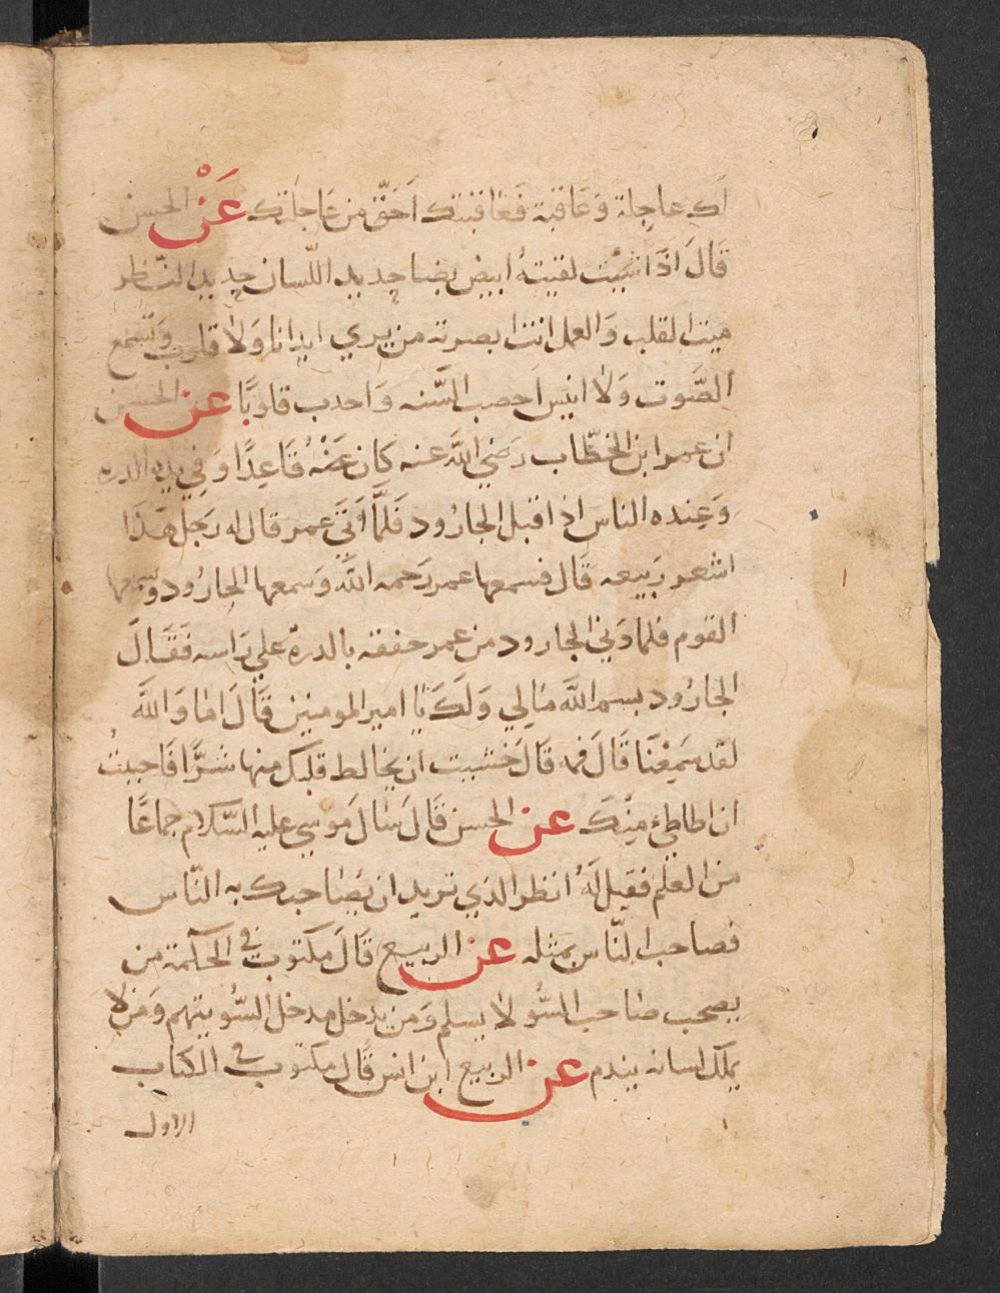 لك عاجلة وَعَاقبة فَعَاقبتك اَحَقّ من عَاجلتك عَنْ الحسن
قَالَ اذَا شيت لقيتهُ ابيض بضا حديد اللّسان حديد النّظر
ميت القلب وَالعمل انت ابصر به من يري ابدانا وَلا قلوب وَتسْمع
الصَّوت وَلا انيس اَخصب السَّنه وَاجدب قلوبًا عن الحسن
ان عمر ابن الخطّاب رَضي اللَّه عنه كان قَاعِدًا وَفي يده الدره
وَعنده الناس اذ اقبل الجارُود فَلَمَّا اَتَى عمر قال له رَجل هَذا
رَبيعه قَال فسمعها عمر رَحمه اللَّه وَسمعها الجارُود وسمعها
القوم فلما دَني الجارود من عمر خفقه بالدرة علي رَاسه فَقَالَ
الجارُود بسم اللَّه مَا لي وَلَكَ يَا امير المومنين قَالَ امَا وَاللَّه
لقد سَمِعْتَهَا قَالَ فمه قَالَ خَشيت ان يخالط قلبك منها شرًّا فَاحببتُ
ان اطاطئ مِنْكَ عن الحسن قَالَ سَال مَوسي عليه السَّلام جماعًا
من العلم فقيل لَهُ انظر الذي تريد ان يصَاحبك به النّاس
فصاحب النّاس بمثله عن الربيع قَالَ مكتوب في الحكمة من
يصحب صَاحب السُّو لا يسلم وَمن يدخل مدخل السُّو يتهم وَمن لا
يملك لسانه يندم عن الربيع ابن انس قَال مكتوب في الكتاب
الاول